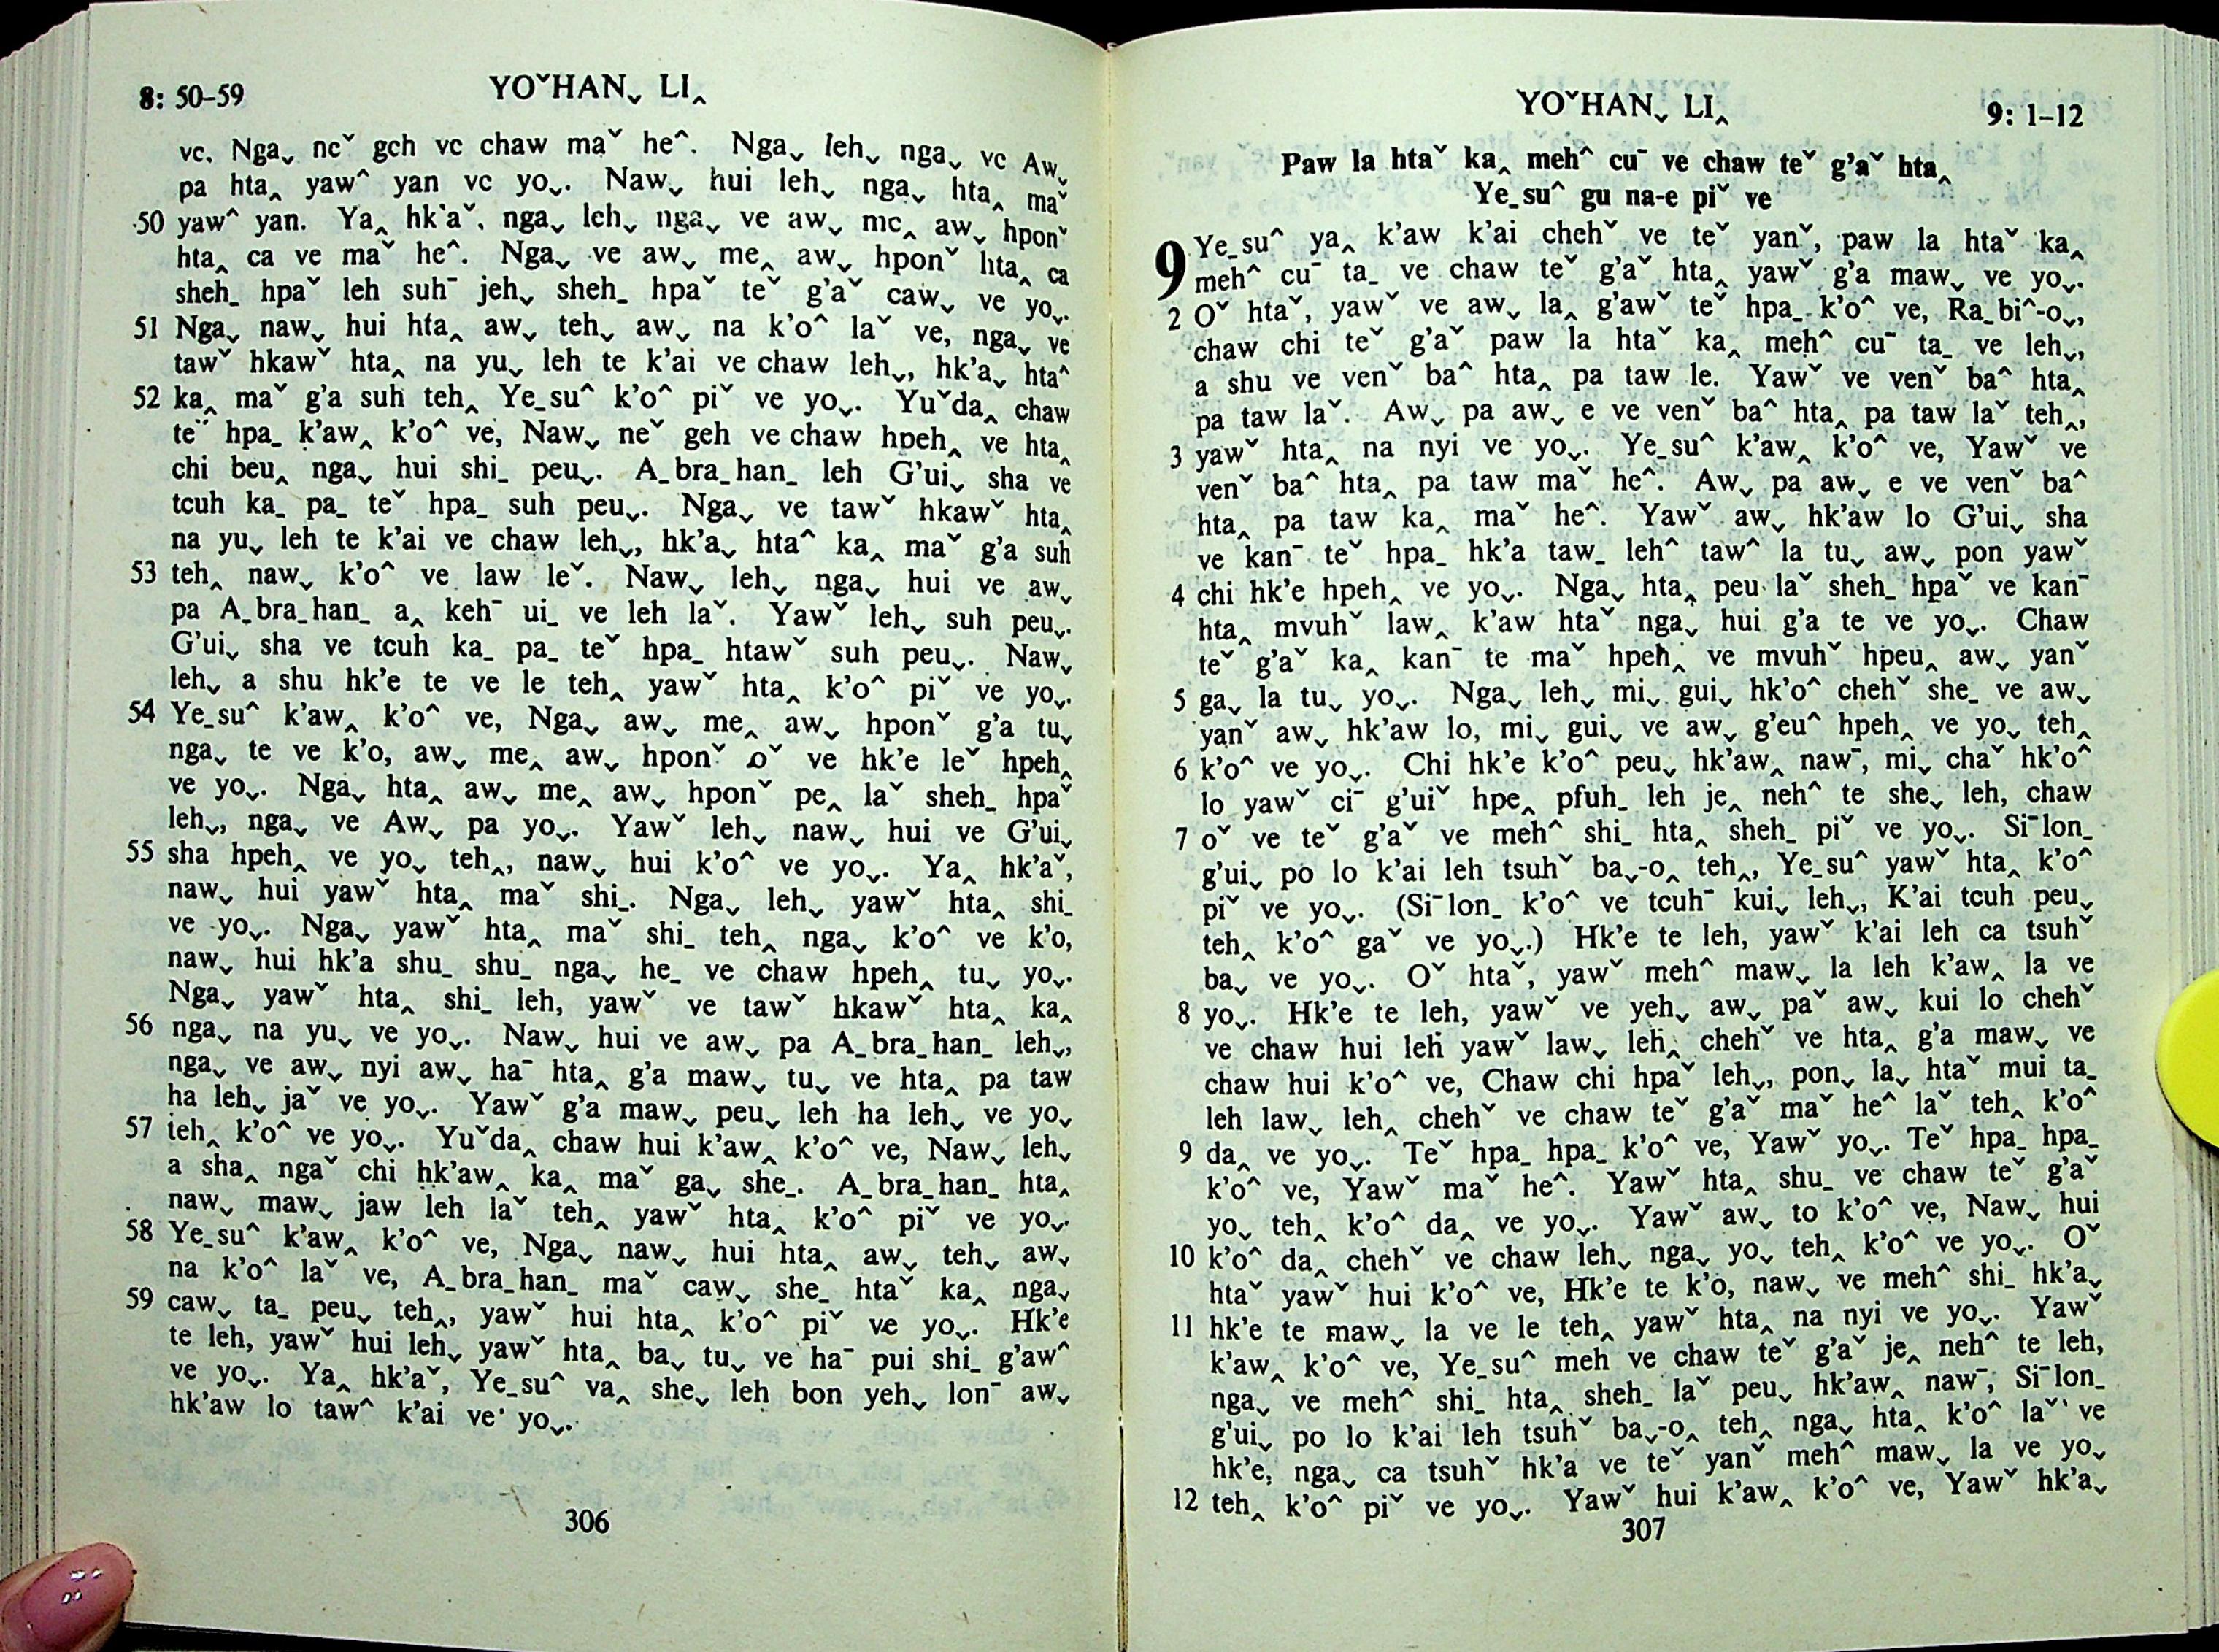 8: 50–59
YOˇHANˬ LI‸
ve. Ngaˬ neˇ geh ve chaw maˇ heˆ. Ngaˬ lehˬ ngaˬ ve Awˬ
pa hta‸ yawˆ yan ve yoˬ. Nawˬ hui lehˬ ngaˬ hta‸ maˇ
50 yawˆ yan. Ya‸ hk'aˇ, ngaˬ lehˬ ngaˬ ve awˬ me‸ awˬ hponˇ
hta‸ ca ve maˇ heˆ. Ngaˬ ve awˬ me‸ awˬ hponˇ hta‸ ca
sheh_ hpaˇ leh suhˉ jehˬ sheh_ hpaˇ teˇ g'aˇ cawˬ ve yoˬ.
51 Ngaˬ nawˬ hui hta‸ awˬ tehˬ awˬ na k'oˆ laˇ ve, ngaˬ ve
tawˇ hkawˇ hta‸ na yuˬ leh te k'ai ve chaw lehˬ, hk'aˬ htaˆ
52 ka‸ maˇ g'a suh teh‸ Ye_suˆ k'oˆ piˇ ve yoˬ. Yuˇda‸ chaw
teˇ hpa_ k'aw‸ k'oˆ ve, Nawˬ neˇ geh ve chaw hpeh‸ ve hta‸
chi beu‸ ngaˬ hui shi_ peuˬ. A_bra_han_ leh G'uiˬ sha ve
tcuh ka_ pa_ teˇ hpa_ suh peuˬ. Ngaˬ ve tawˇ hkawˇ hta‸
na yuˬ leh te k'ai ve chaw lehˬ, hk'aˬ htaˆ ka‸ maˇ g'a suh
53 teh‸ nawˬ k'oˆ ve law leˇ. Nawˬ lehˬ ngaˬ hui ve awˬ
pa A_bra_han_ a‸ kehˉ ui_ ve leh laˇ. Yawˇ lehˬ suh peuˬ.
G'uiˬ sha ve tcuh ka_ pa_ teˇ hpa_ htawˇ suh peuˬ. Nawˬ
lehˬ a shu hk'e te ve le teh‸ yawˇ hta‸ k'oˆ piˇ ve yoˬ.
54 Ye_suˆ k'aw‸ k'oˆ ve, Ngaˬ awˬ me‸ awˬ hponˇ g'a tuˬ
ngaˬ te ve k'o, awˬ me‸ awˬ hponˇ oˇ ve hk'e leˇ hpeh‸
ve yoˬ. Ngaˬ hta‸ awˬ me‸ awˬ hponˇ pe‸ laˇ sheh_ hpaˇ
lehˬ, ngaˬ ve Awˬ pa yoˬ. Yawˇ lehˬ nawˬ hui ve G'uiˬ
55 sha hpeh‸ ve yoˬ teh‸, nawˬ hui k'oˆ ve yoˬ. Ya‸ hk'aˇ,
nawˬ hui yawˇ hta‸ maˇ shi_. Ngaˬ lehˬ yawˇ hta‸ shi_
ve yoˬ. Ngaˬ yawˇ hta‸ maˇ shi_ teh‸ ngaˬ k'oˆ ve k'o,
nawˬ hui hk'a shu_ shu_ ngaˬ he_ ve chaw hpeh‸ tuˬ yoˬ.
Ngaˬ yawˇ hta‸ shi_ leh, yawˇ ve tawˇ hkawˇ hta‸ ka‸
56 ngaˬ na yuˬ ve yoˬ. Nawˬ hui ve awˬ pa A_bra_han_ lehˬ,
ngaˬ ve awˬ nyi awˬ haˉ hta‸ g'a mawˬ tuˬ ve hta‸ pa taw
ha lehˬ jaˇ ve yoˬ. Yawˇ g'a mawˬ peuˬ leh ha lehˬ ve yoˬ
57 teh‸ k'oˆ ve yoˬ. Yuˇda‸ chaw hui k'aw‸ k'oˆ ve, Nawˬ lehˬ
a sha‸ ngaˇ chi hk'aw‸ ka‸ maˇ gaˬ she_. A_bra_han_ hta‸
nawˬ mawˬ jaw leh laˇ teh‸ yawˇ hta‸ k'oˆ piˇ ve yoˬ.
58 Ye_suˆ k'aw‸ k'oˆ ve, Ngaˬ nawˬ hui hta‸ awˬ tehˬ awˬ
na k'oˆ laˇ ve, A_bra_han_ maˇ cawˬ she_ htaˇ ka‸ ngaˬ
59 cawˬ ta_ peuˬ teh‸, yawˇ hui hta‸ k'oˆ piˇ ve yoˬ. Hk'e
te leh, yawˇ hui lehˬ yawˇ hta‸ baˬ tuˬ ve haˉ pui shi_ g'awˆ
ve yoˬ. Ya‸ hk'aˇ, Ye_suˆ va‸ sheˬ leh bon yehˬ lonˉ awˬ
hk'aw lo tawˆ k'ai ve yoˬ.
306
YOˇHANˬ LI‸
9: 1–12
Paw la htaˇ ka‸ mehˆ cuˉ ve chaw teˇ g'aˇ hta‸
Ye_suˆ gu na-e piˇ ve
9 Ye_suˆ ya‸ k'aw k'ai chehˇ ve teˇ yanˇ, paw la htaˇ ka‸
mehˆ cuˉ ta_ ve chaw teˇ g'aˇ hta‸ yawˇ g'a mawˬ ve yoˬ.
2 Oˇ htaˇ, yawˇ ve awˬ la‸ g'awˇ teˇ hpa_ k'oˆ ve, Ra_biˆ-oˬ,
chaw chi teˇ g'aˇ paw la htaˇ ka‸ mehˆ cuˉ ta_ ve lehˬ,
a shu ve venˇ baˆ hta‸ pa taw le. Yawˇ ve venˇ baˆ hta‸
pa taw laˇ. Awˬ pa awˬ e ve venˇ baˆ hta‸ pa taw laˇ teh‸,
3 yawˇ hta‸ na nyi ve yoˬ. Ye_suˆ k'aw‸ k'oˆ ve, Yawˇ ve
venˇ baˆ hta‸ pa taw maˇ heˆ. Awˬ pa awˬ e ve venˇ baˆ
hta‸ pa taw ka‸ maˇ heˆ. Yawˇ awˬ hk'aw lo G'uiˬ sha
ve kanˉ teˇ hpa_ hk'a taw_ lehˆ tawˆ la tuˬ awˬ pon yawˇ
4 chi hk'e hpeh‸ ve yoˬ. Ngaˬ hta‸ peu laˇ sheh_ hpaˇ ve kanˉ
hta‸ mvuhˇ law‸ k'aw htaˇ ngaˬ hui g'a te ve yoˬ. Chaw
teˇ g'aˇ ka‸ kanˉ te maˇ hpeh‸ ve mvuhˇ hpeu‸ awˬ yanˇ
5 gaˬ la tuˬ yoˬ. Ngaˬ lehˬ miˬ guiˬ hk'oˆ chehˇ she_ ve awˬ
yanˇ awˬ hk'aw lo, miˬ guiˬ ve awˬ g'euˆ hpeh‸ ve yoˬ teh‸
6 k'oˆ ve yoˬ. Chi hk'e k'oˆ peuˬ hk'aw‸ nawˉ, miˬ chaˇ hk'oˆ
lo yawˇ ciˉ g'uiˇ hpe‸ pfuh_ leh je‸ nehˆ te sheˬ leh, chaw
7 oˇ ve teˇ g'aˇ ve mehˆ shi_ hta‸ sheh_ piˇ ve yoˬ. Siˉlon_
g'uiˬ po lo k'ai leh tsuhˇ baˬ-o‸ teh‸, Ye_suˆ yawˇ hta‸ k'oˆ
piˇ ve yoˬ. (Siˉlon_ k'oˆ ve tcuhˉ kuiˬ lehˬ, K'ai tcuh peuˬ
teh‸ k'oˆ gaˇ ve yoˬ.) Hk'e te leh, yawˇ k'ai leh ca tsuhˇ
baˬ ve yoˬ. Oˇ htaˇ, yawˇ mehˆ mawˬ la leh k'aw‸ la ve
8 yoˬ. Hk'e te leh, yawˇ ve yehˬ awˬ paˇ awˬ kui lo chehˇ
ve chaw hui leh yawˇ lawˬ leh‸ chehˇ ve hta‸ g'a mawˬ ve
chaw hui k'oˆ ve, Chaw chi hpaˇ lehˬ, ponˬ laˬ htaˇ mui ta_
leh lawˬ leh‸ chehˇ ve chaw teˇ g'aˇ maˇ heˆ laˇ teh‸ k'oˆ
9 da‸ ve yoˬ. Teˇ hpa_ hpa_ k'oˆ ve, Yawˇ yoˬ. Teˇ hpa_ hpa_
k'oˆ ve, Yawˇ maˇ heˆ. Yawˇ hta‸ shu_ ve chaw teˇ g'aˇ
yoˬ teh‸ k'oˆ da‸ ve yoˬ. Yawˇ awˬ to k'oˆ ve, Nawˬ hui
10 k'oˆ da‸ chehˇ ve chaw lehˬ ngaˬ yoˬ teh‸ k'oˆ ve yoˬ. Oˇ
htaˇ yawˇ hui k'oˆ ve, Hk'e te k'o, nawˬ ve mehˆ shi_ hk'aˬ
11 hk'e te mawˬ la ve le teh‸ yawˇ hta‸ na nyi ve yoˬ. Yawˇ
k'aw‸ k'oˆ ve, Ye_suˆ meh ve chaw teˇ g'aˇ je‸ nehˆ te leh,
ngaˬ ve mehˆ shi_ hta‸ sheh_ laˇ peuˬ hk'aw‸ nawˉ, Siˉlon_
g'uiˬ po lo k'ai leh tsuhˇ baˬ-o‸ teh‸ ngaˬ hta‸ k'oˆ laˇ ve
hk'e, ngaˬ ca tsuhˇ hk'a ve teˇ yanˇ mehˆ mawˬ la ve yoˬ
12 teh‸ k'oˆ piˇ ve yoˬ. Yawˇ hui k'aw‸ k'oˆ ve, Yawˇ hk'aˬ
307